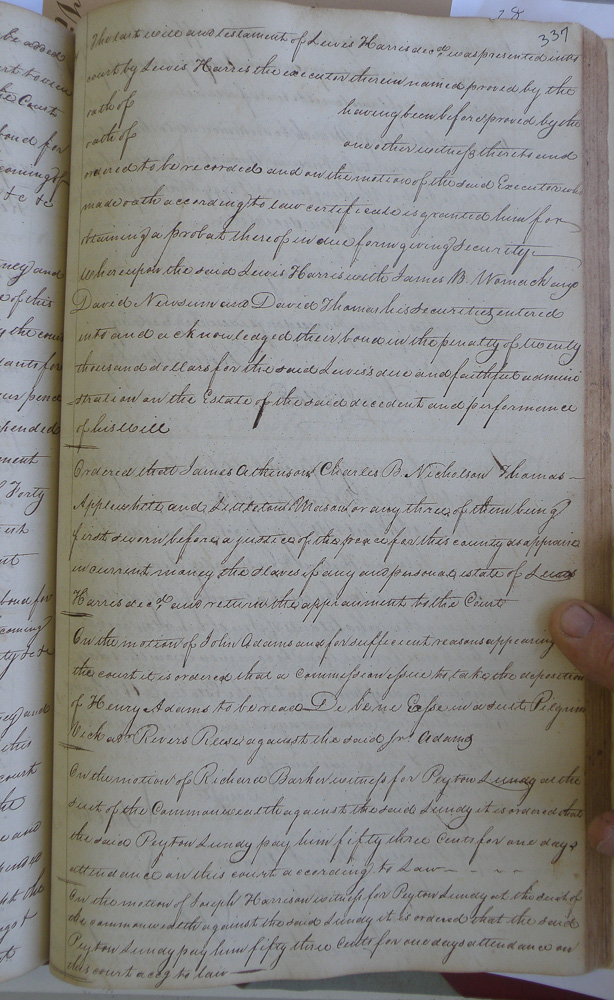 337
The last will and testament of Lewis Harris decd. was presented into
court by Lewis Harris the executor therein named proved by the
oath of having been before proved by the
oath of one other witness thereto and
ordered to be recorded and on the motion of the said Executor who
made oath according to law certificate is granted him for
obtaining a probat thereof in due form giving Security
Whereupon the said Lewis Harris with James B. Womack and
David Newsum and David Thomas his securities entered
into and acknowledged their bond in the penalty of twenty
thousand dollars for the said Lewis's due and faithful admini
stration on the Estate of the said decedent and performance
of his Will
Ordered that James Atkinson Charles B. Nicholson Thomas
Applewhite and Littleton Mason or any three of them being
first sworn before a justice of the peace for this county do appraise
in current money the slaves if any and personal estate of Lewis
Harris decd. and return the appraisment to the Court
On the motion of John Adams and for sufficient reasons appearing
the court it is ordered that a Commission issue to take the deposition
of Henry Adams to be read De bene Esse in a suit Pilgrim
Rivers Reese against the said Jno. Adams
On the motion of Richard Barker witness for Peyton Lundy at the
suit of the Commonwealth against the said Lundy it is ordered that
the said Peyton Lundy pay him fifty three Cents for one days
attendance on this court according to Law
On the motion of Joseph Harrison witness for Peyton Lundy at the suit of
the commonwealth against the said Lundy it is ordered that the said
Peyton Lundy pay him fifty three Cents for one days attendance on
this court accg to law